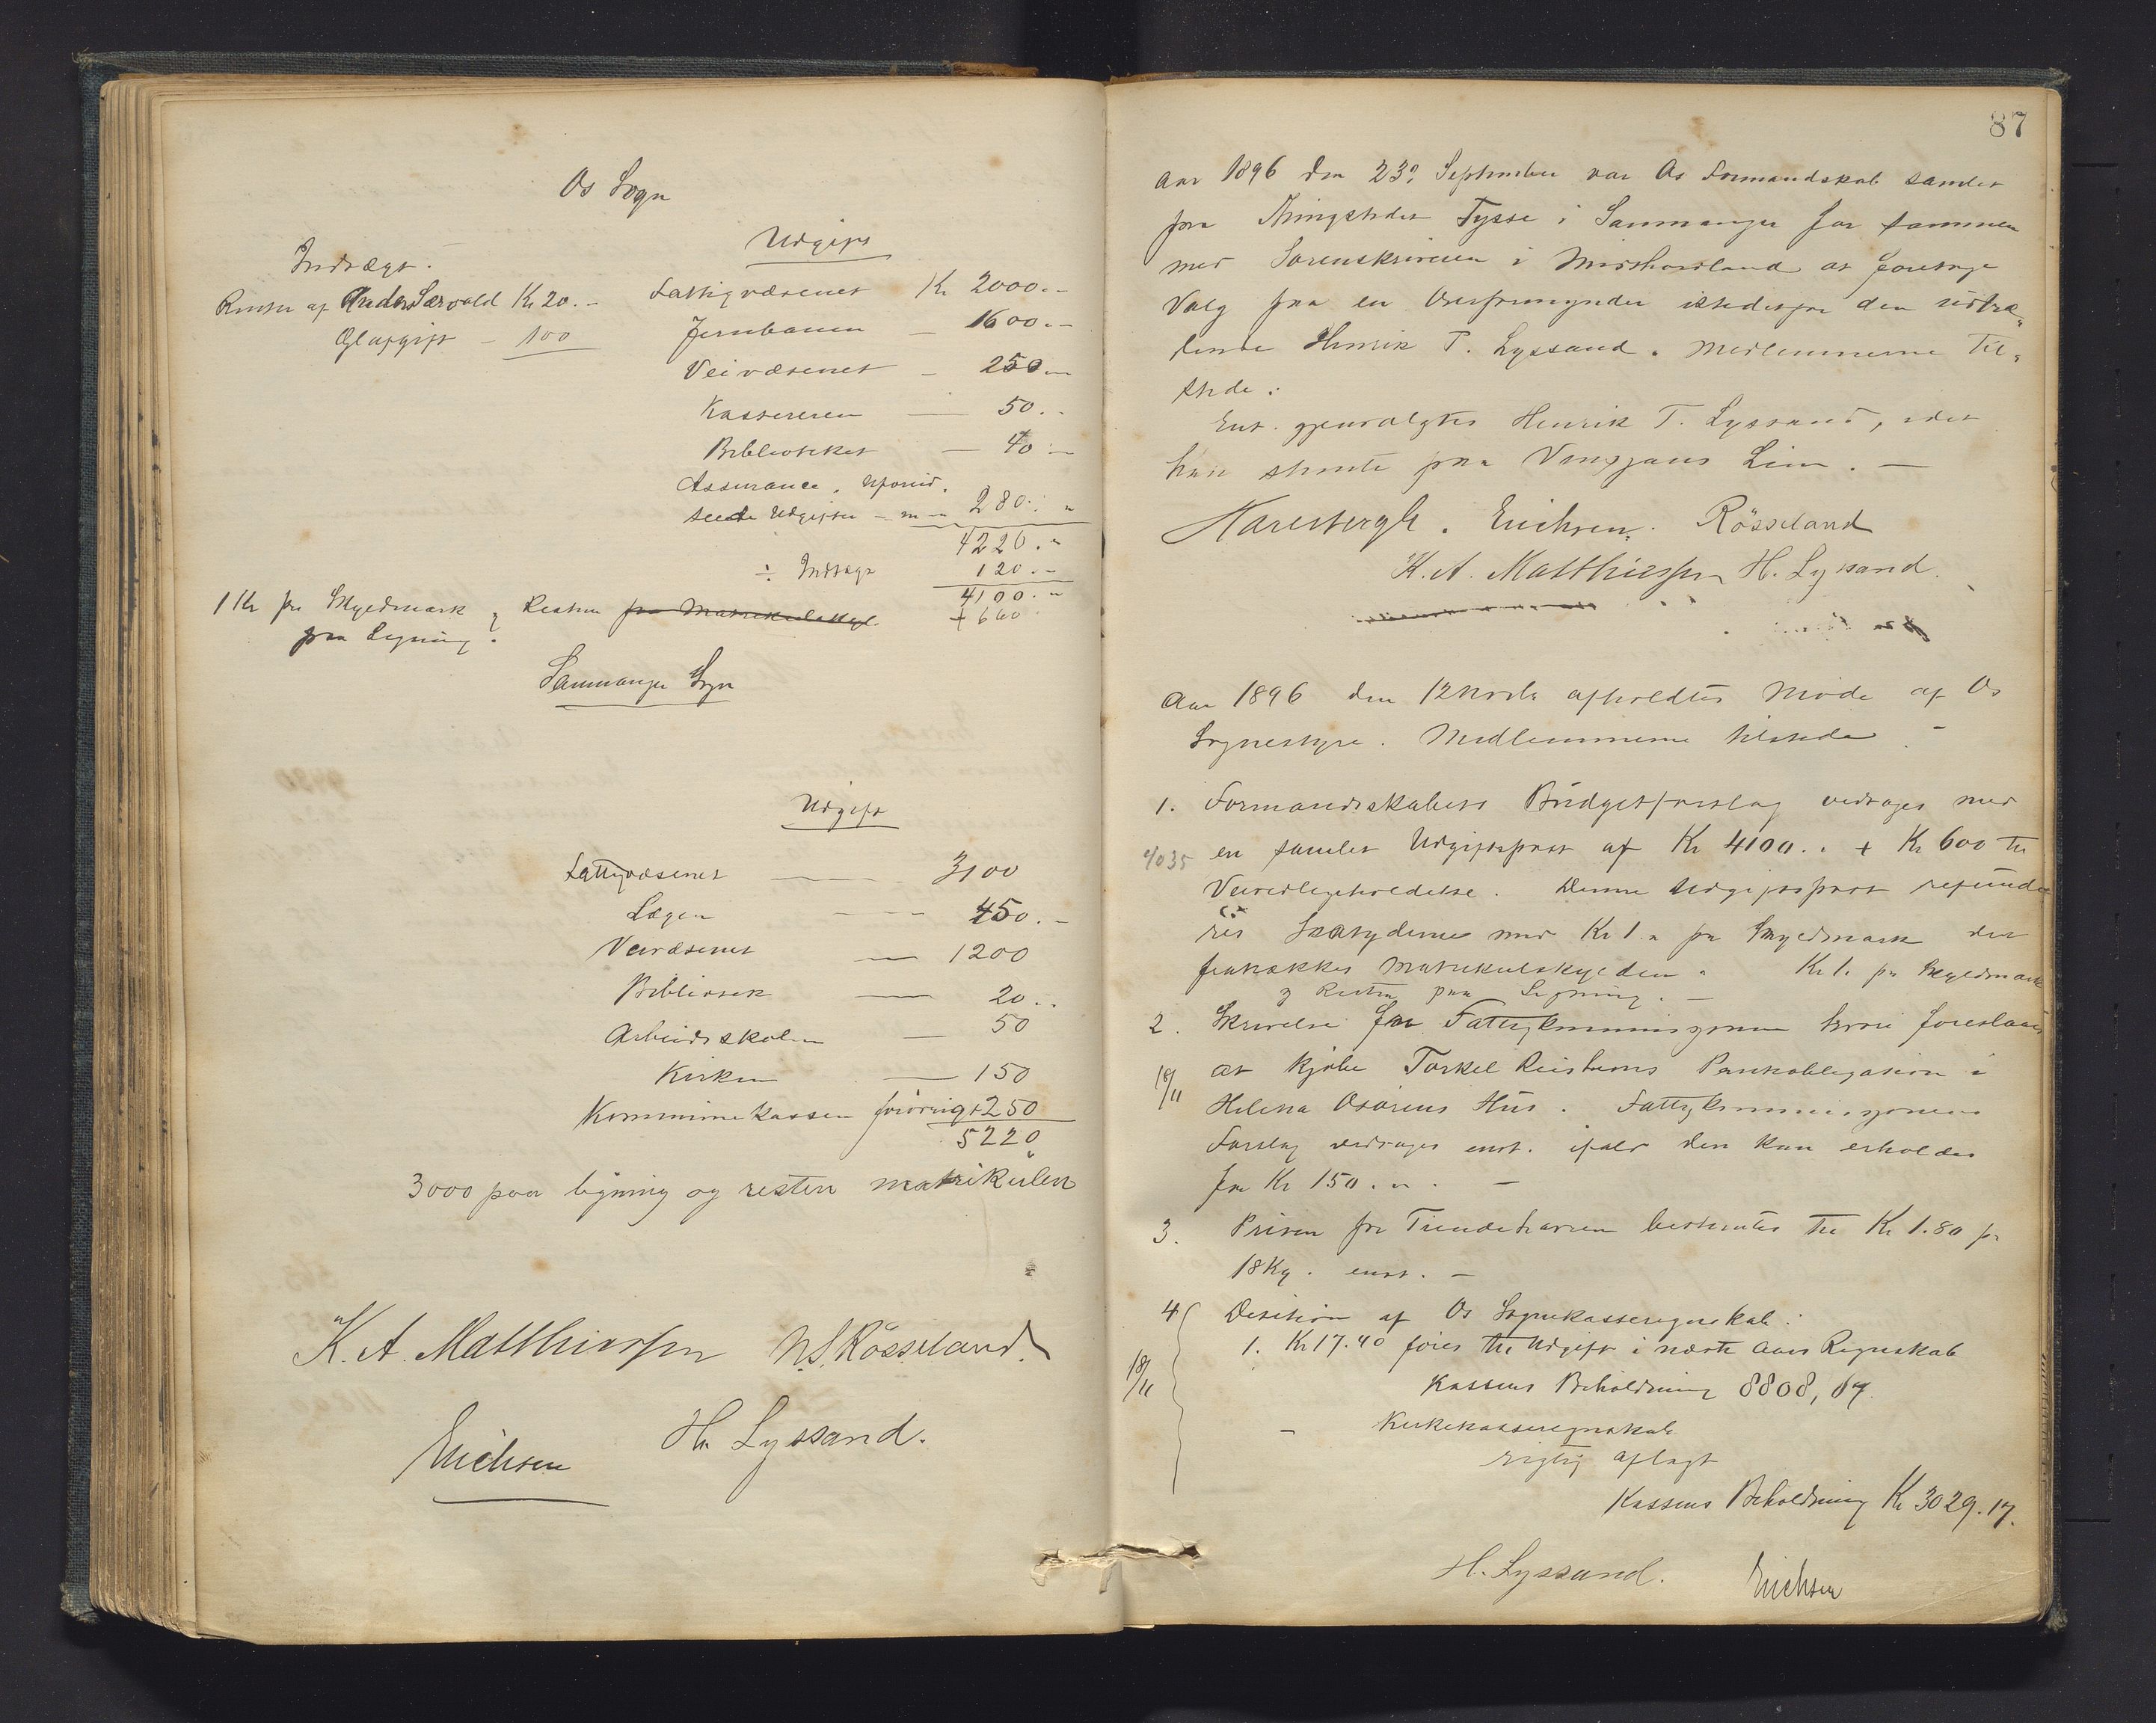 Os Sogn
Indtægt.
Renter af Anders Særvold Kr 20.-
Ølafgift - 100
Udgift
Fattigvæsenet Kr 2000.-
Jernbanen - 1600.-
Veivæsenet - 250.-
Kassereren - 50.-
Bibliotheket - 40.-
Assurance, uforud,
seede Udgifter - m - 280.-
4220.-
÷ Indtægt 120.-
4100.-
+ 600
1 Kr pr Skyldmark og Resten
paa Ligning.
Sammanger Sogn
Udgift
Fattigvæsenet - 3100
Lægen - 450.-
Veivæsenet - 1200
Bibliothek - 20..
Arbeidsskolen - 50
Kirken - 150
Kommunekassen forøvrigt 250
5220
3000 paa ligning og resten matrikulen
K. A. Matthiessen N.S. Røsseland.
Erichsen H. Lyssand.
87
Aar 1896 den 23de September var Os Formandskab samlet
paa Thingstedet Tysse i Sammanger for sammen
med Sorenskriveren i Midthordland at foretage
Valg paa en Overformynder istedetfor den udtræ„
dende Henrik T. Lyssand. Medlemmerne Til„
stede:
Enst. gjenvalgtes Henrik T. Lyssand, idet
han stemte paa Lien. -
Erichsen. Røsseland
K. A. Matthiessen H. Lyssand.
Aar 1896 den 12 Novbr afholdtes Møde af Os
Sognestyre. Medlemmerne tilstede. -
1. Formandsskabets Budgetforslag vedtoges med
en samlet Udgiftspost af Kr 4100.. + Kr 600 til
Veivedligeholdelse. Denne Udgiftspost refunde
res Skatyderne med Kr 1.- pr Skyldmark der
fratrækkes Matrikulskylden. Kr 1. pr Skyldmark
og Resten paa Ligning. -
2. Skrivelse fra Fattigkommissionen hvori foreslaaes
at kjøbe Torkel Pantobligation i
18/11
Helena Osørens Hus. Fattigkommissionens
Forslag vedtoges enst. ifald den kan erholdes
for Kr 150.-. -
3. Prisen for Tiendehavren bestemtes til Kr 1.80 pr
18 Kg. enst. -
4 Desision af Os Sognekasseregnskab:
1. Kr 17.40 føres til Udgift i næste Aars Regnskab
18/11
Kassens Beholdning 8808,04
- Kirkekasseregnskab
rigtig aflagt
Kassens Beholdning Kr 3029.17.
H. Lyssand. Erichsen